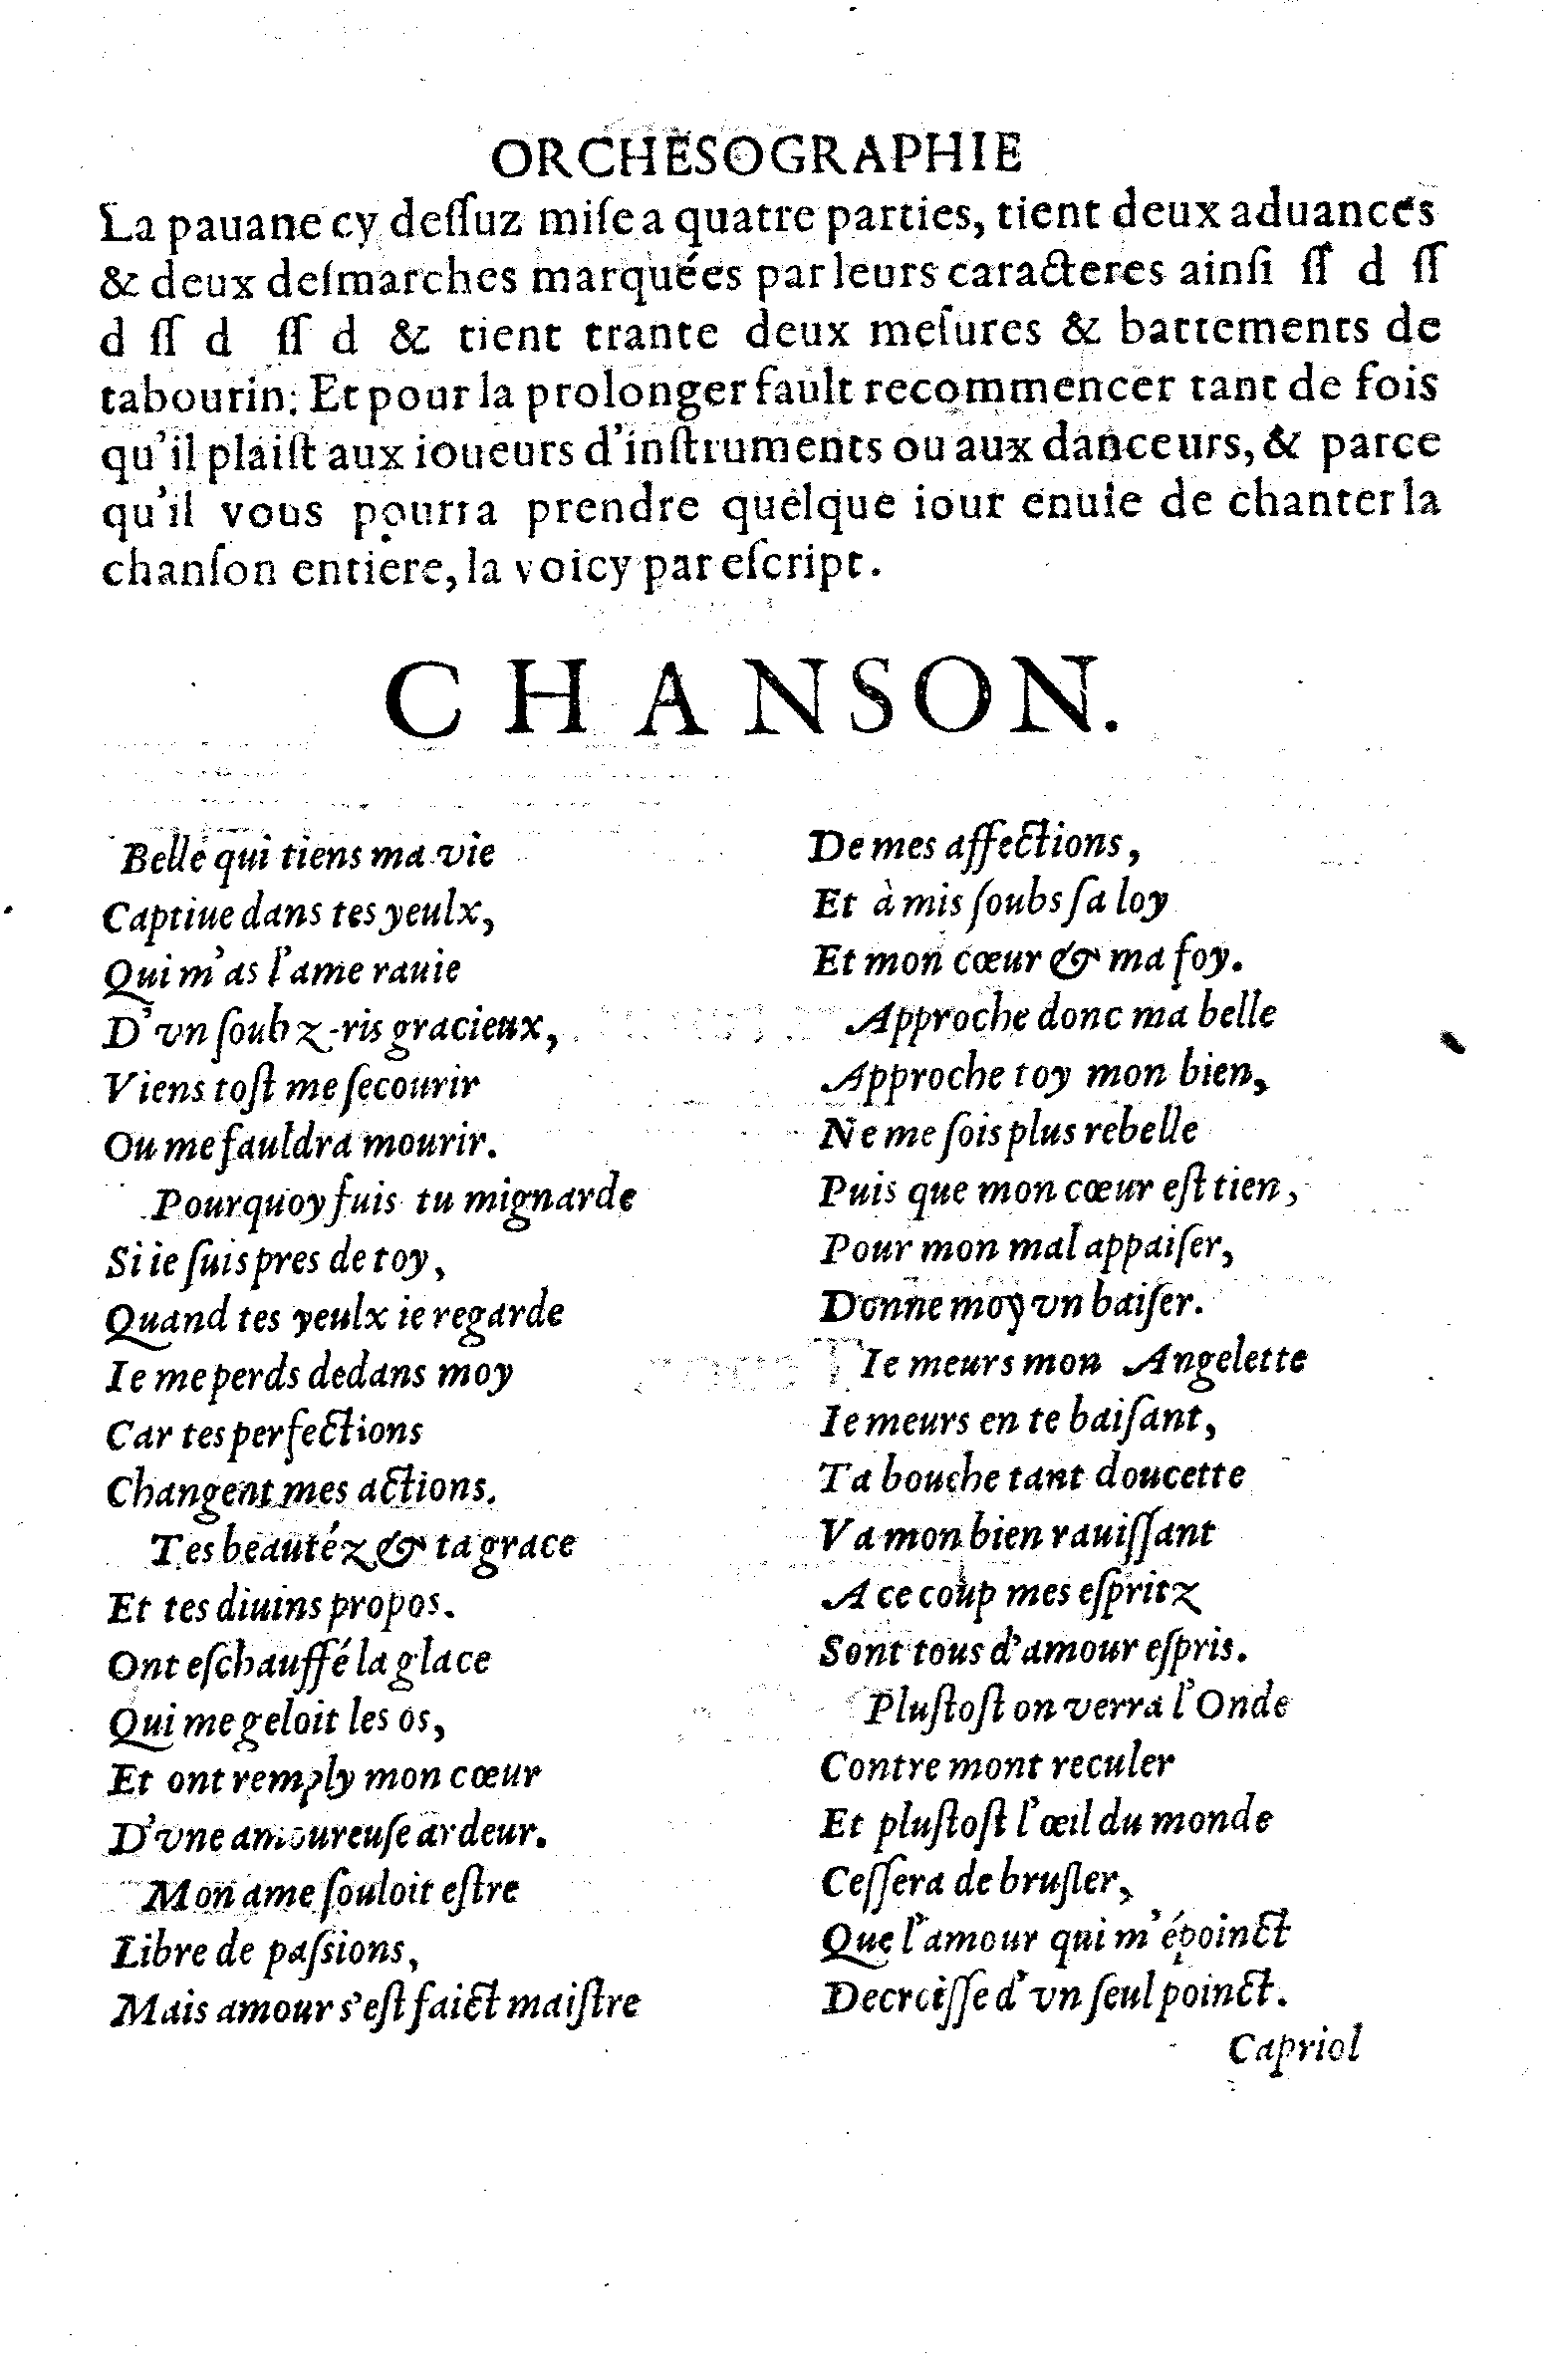 ORCHESOGRAPHIE
La pauane cy deſſuz miſe a quatre parties, tient deux aduances
& deux deſmarches marquées par leurs caracteres ainſi ſſ d ſſ
d ſſ d ſſ d & tient trante deux meſures & battements de
tabourin: Et pour la prolonger fault recommencer tant de fois
qu'il plaiſt aux ioueurs d'inſtruments ou aux danceurs, & parce
qu'il vous pourra prendre quelque iour enuie de chanter la
chanſon entiere, la voicy par eſcript.
CHANSON.
Belle qui tiens ma vie
Captiue dans tes yeulx,
Qui m'as l'ame rauie
D'vn ſoubz-ris gracieux,
Viens toſt me ſecourir
Ou me fauldra mourir.
Pourquoy fuis tu mignarde
Si ie ſuis pres de toy,
Quand tes yeulx ie regarde
Ie me perds dedans moy
Car tes perfections
Changent mes actions.
Tes beautéz & ta grace
Et tes diuins propos.
Ont eſchauffé la glace
Qui me geloit les os,
Et ont remply mon cœur
D'vne amoureuſe ardeur.
Mon ame ſouloit eſtre
Libre de paſsions,
Mais amour s'eſt faict maiſtre
De mes affections,
Et à mis ſoubs ſa loy
Et mon cœur & ma foy.
Approche donc ma belle
Approche toy mon bien,
Ne me ſois plus rebelle
Puis que mon cœur eſt tien,
Pour mon mal appaiſer,
Donne moy vn baiſer.
Ie meurs mon Angelette
Ie meurs en te baiſant,
Ta bouche tant doucette
Va mon bien rauiſſant
A ce coup mes eſpritz
Sont tous d'amour eſpris.
Pluſtoſt on verra l'Onde
Contre mont reculer
Et pluſtoſt l'œil du monde
Ceſſera de bruſler,
Que l'amour qui m'époinct
Decroiſſe d'vn ſeul poinct.
Capriol